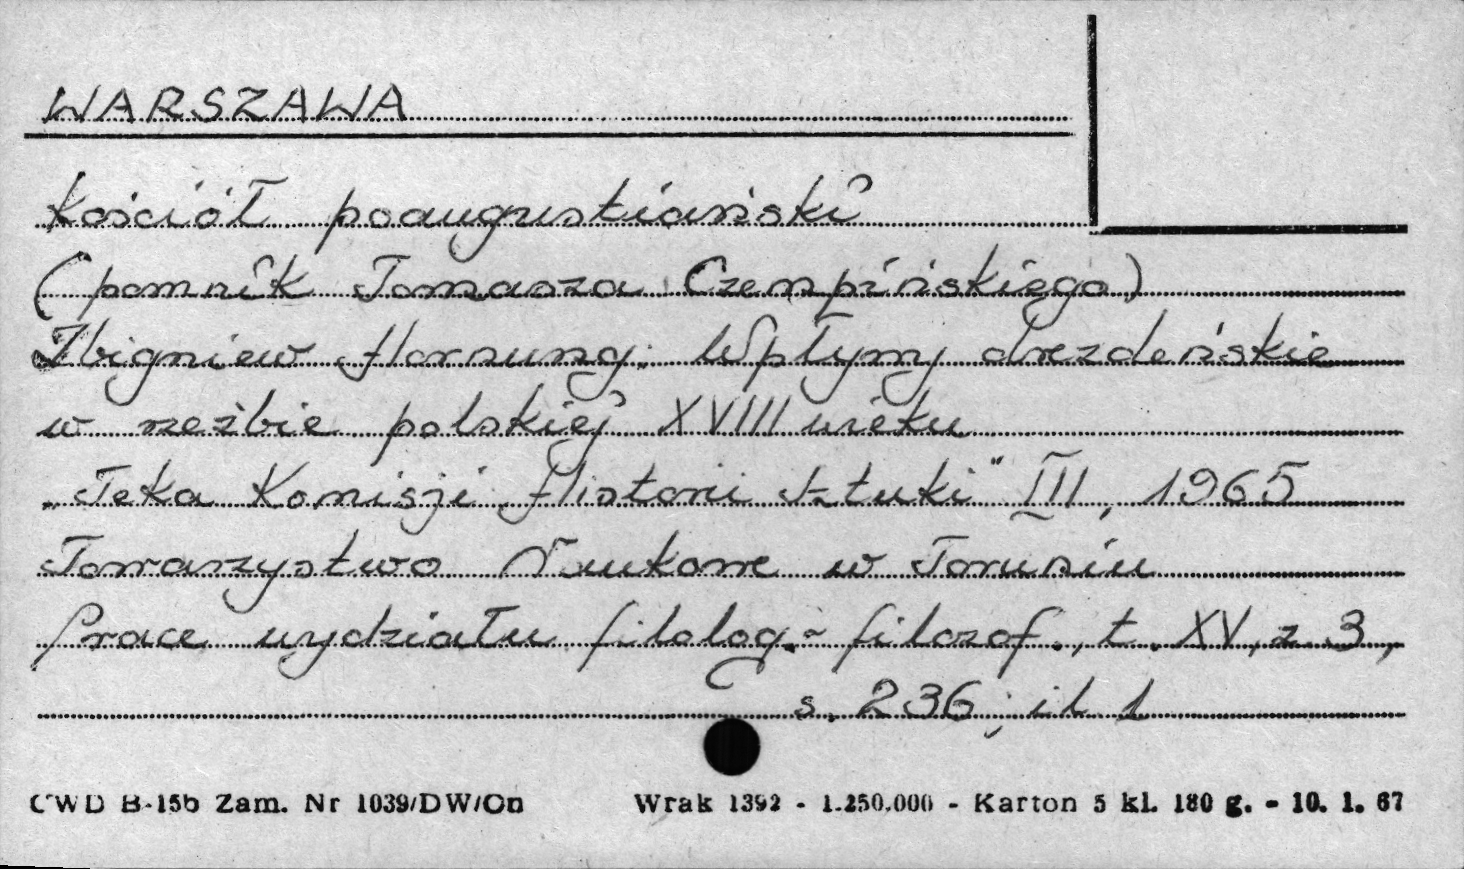 WARSZAWA
Kościół poaugustiański
(pomnik Tomasza Czempińskiego)
Zbigniew Hornung: Wpływy drezdeńskie
w rzeźbie polskiej XVIII wieku
„Teka Komisji Historii Sztuki" III, 1965
Towarzystwo Naukowe w Toruniu
Prace wydziału filolog.-filozof., t. XV, z. 3,
s. 236; il. 1
CWD B-15b Zam. Nr 1039/DW/On Wrak 1392 - 1.250.000 - Karton 5 kl. 180 g. - 10. 1. 67